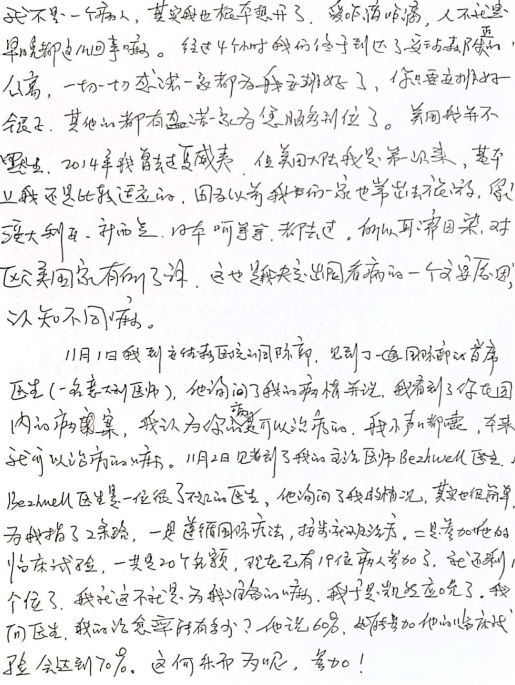 我不是一个病人，其实我也根本想开了，爱咋滴咋滴，人不就是
早晚都这么回事嘛。经过4个小时我们终于到达了安诺森医院的
公寓，一切一切盛诺一家都为我安排好了，你只要安排好
自己，其他的都有盛诺一家为您服务到位了。美国我并不
陌生，2014年我曾去过夏威夷，但美国大陆我是第一次来，基本
上我还是比较适应的，因为以前我们一家也常出去旅游，像
澳大利亚、新西兰、日本呵等等，都去过。所以耳濡目染，对
欧美国家有所了解，这也是我决定出国看病的一个主要原因，
认知不同嘛。
11月1日我到安德森医院的国际部，见到了一位国际部的首席
医生（一名意大利医师），他询问了我的病情并说，我看到了你在国
内的病案，我认为你的病是可以治疗的，我小声嘟囔，本来
就可以治疗的嘛。11月2日见到了我的主治医师Bezhwell医生，
Bezhwell医生是一位很了不起的医生，他询问了我的情况，其实也很简单，
为我指了2条路，一是遵循国际疗法，按靶向及治疗。二是参加他的
临床试验，一共是20个名额，现在已有19位病人参加了，就还剩1
个位了，我就这不就是为我准备的嘛，我于是凯然应允了。我
问医生，我的治愈率能有多少？他说60%，如能参加他的临床试
验会达到70%。这何乐而不为呢，参加！